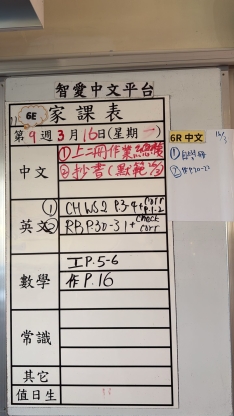 智愛中文平台
6E
家課表
第9週3月16日(星期一)
中文
①上二冊作業
②抄書(默範
英文
① CH WS2 P.3-4+ corr P.1-2
② RB P.30-31+ check corr
數學
工P.5-6
作P.16
常識
其它
值日生
6R 中文
16/3
①
②